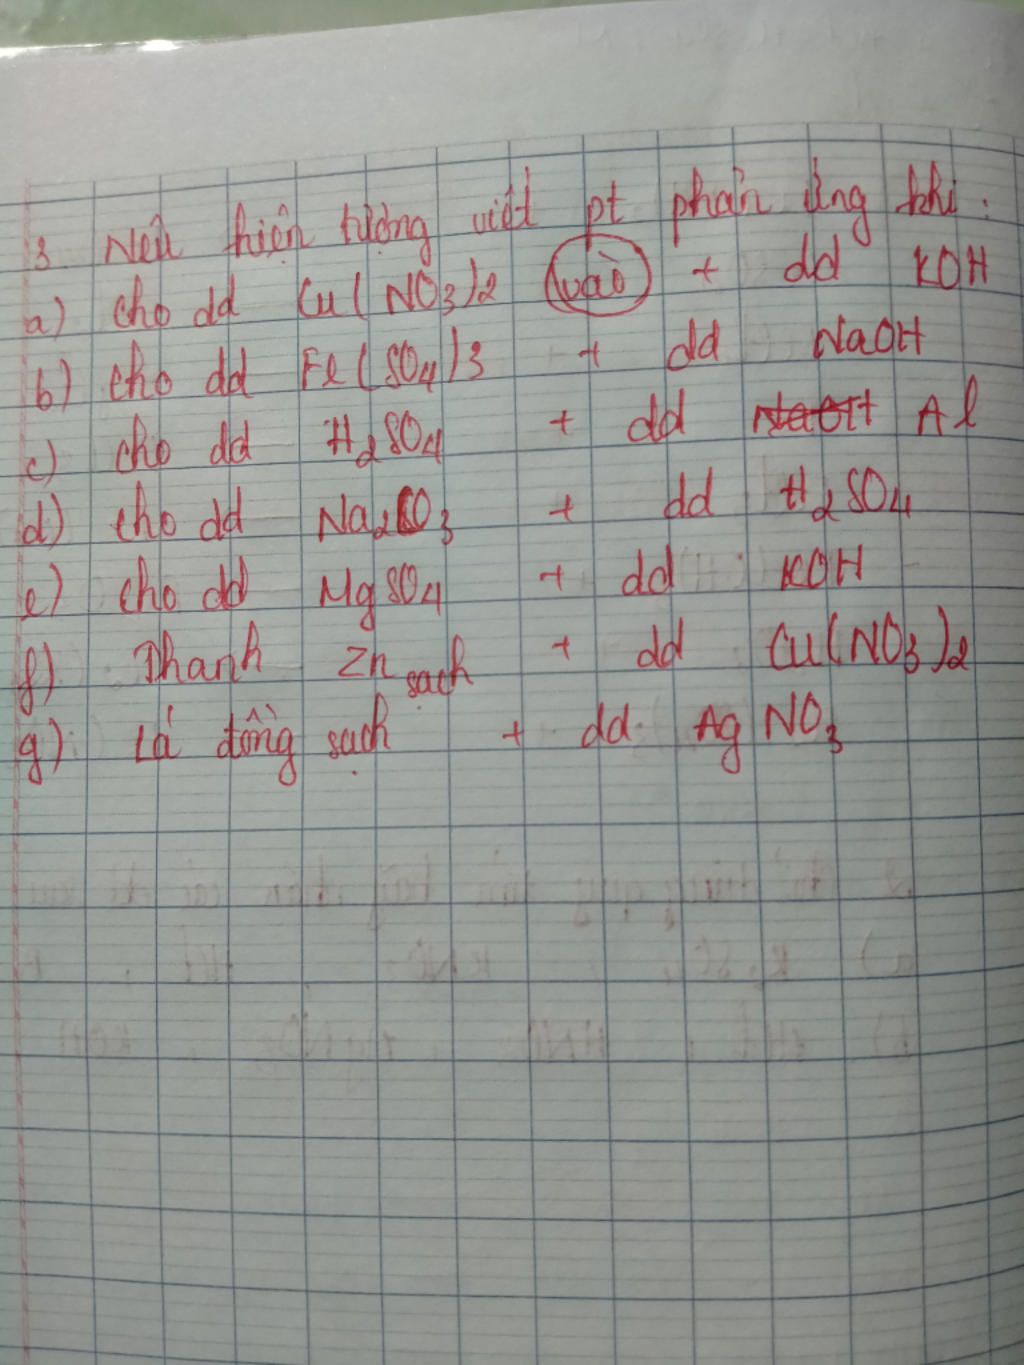 3. Nêu hiện tượng viết pt phản ứng khi:
a) cho dd Cu(NO3)2 vào + dd KOH
b) cho dd Fe(SO4)3 + dd NaOH
c) cho dd H2SO4 + dd NaOH Al
d) cho dd Na2CO3 + dd H2SO4
e) cho dd MgSO4 + dd KOH
f) Thanh Zn sạch + dd Cu(NO3)2
g) Lá đồng sạch + dd AgNO3